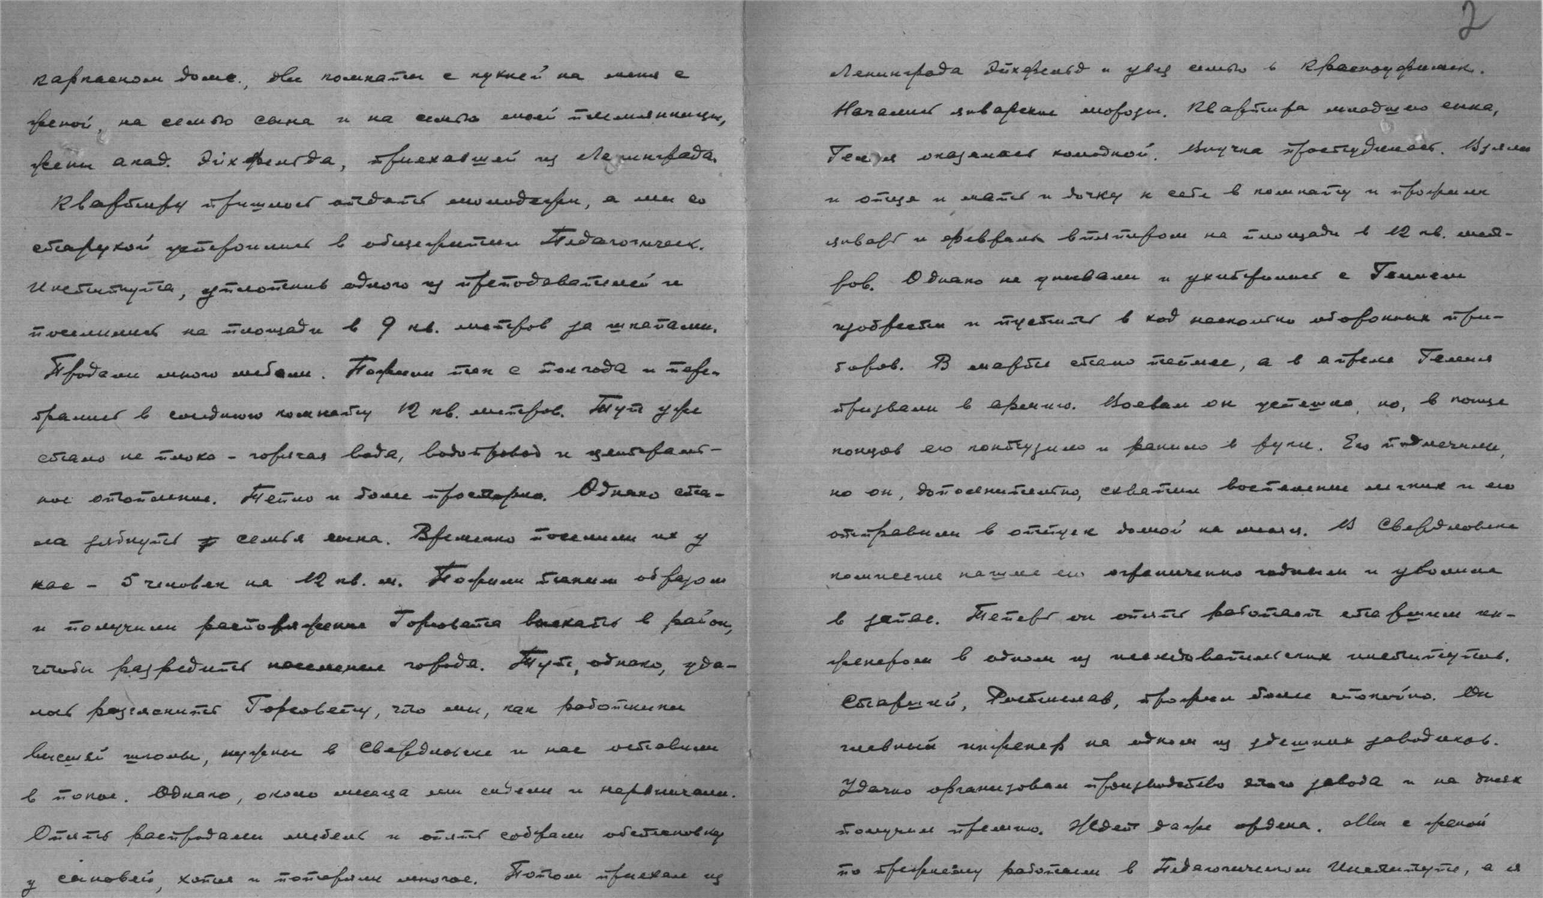 каркасном доме. Две комнаты с кухней на меня с
женой, на семью сына и на семью моей племянницы,
жены акад. Дихфельда, приехавшей из Ленинграда.
Квартиру пришлось отдать молодежи, а мы со
старухой устроились в общежитии Педагогическ.
Института, уплотнив одного из преподавателей и
поселились на площади в 9 кв. метров за шкапами.
Продали много мебели. Пожили так с полгода и пере-
брались в соседнюю комнату 12 кв. метров. Тут уже
стало не плохо - горячая вода, водопровод и централь-
ное отопление. Тепло и более просторно. Однако ста-
ла зябнуть семья сына. Временно поселили их у
нас - 5 человек на 12 кв. м. Пожили таким образом
и получили распоряжение Горсовета выехать в район,
чтобы разредить население города. Тут, однако, уда-
лось разъяснить Горсовету, что мы, как работники
высшей школы, нужны в Свердловске и нас оставили
в покое. Однако, около месяца мы сидели и нервничали.
Опять распродали мебель и опять собрали обстановку
у сыновей, хотя и потеряли многое. Потом приехал из
2
Ленинграда Дихфельд и увез семью в Красноуфимск.
Начались январские морозы. Квартира младшего сына,
оказалась холодной. Внучка простудилась. Взяли
и отца и мать и дочку к себе в комнату и прожили
январь и февраль впятером на площади в 12 кв. мет-
ров. Однако не унывали и ухитрились с
изобрести и пустить в ход несколько оборонных при-
боров. В марте стало теплее, а в апреле
призвали в армию. Воевал он успешно, но, в конце
концов его контузило и ранило в руки. Его подлечили,
но он, дополнительно, схватил воспаление легких и его
отправили в отпуск домой на месяц. В Свердловске
комиссия нашла его ограниченно годным и уволила
в запас. Теперь он опять работает старшим ин-
женером в одном из исследовательских институтов.
Старший, Ростислав, прожил более спокойно. Он
главный инженер на одном из здешних заводиков.
Удачно организовал производство этого завода и на днях
получил премию. Ждет даже ордена. Мы с женой
по прежнему работаем в Педагогическом Институте, а я